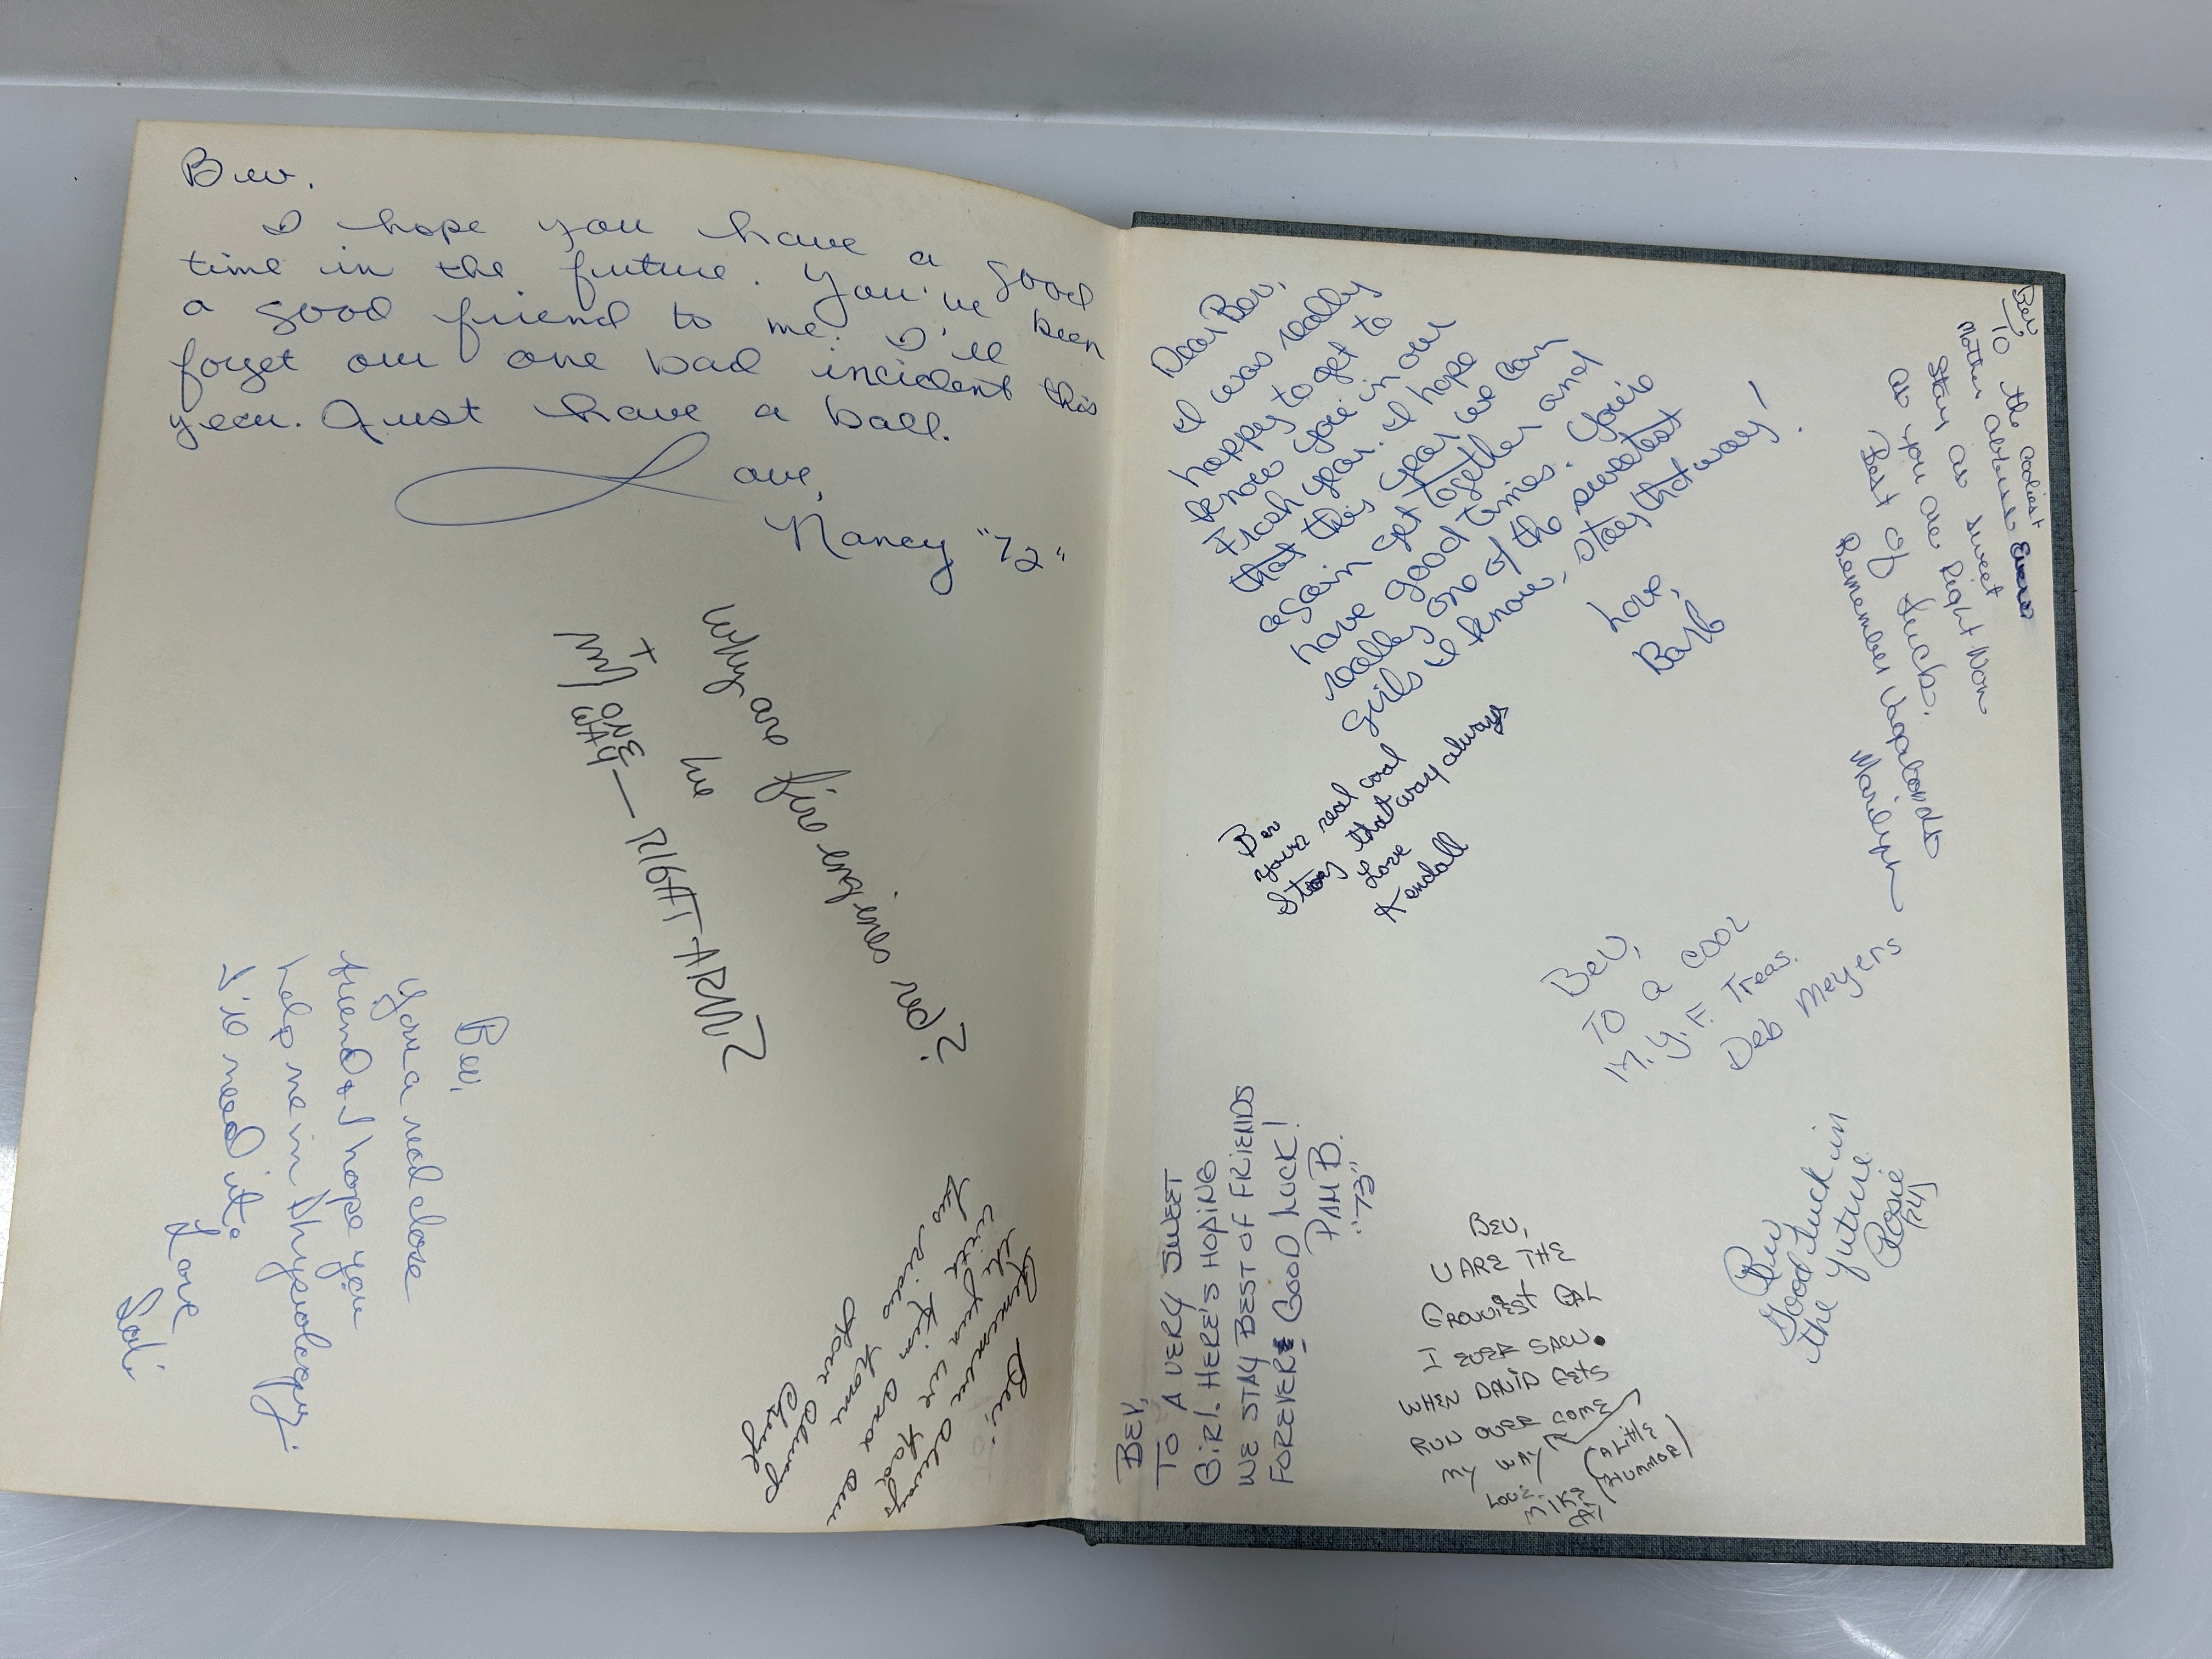 Bev.
I hope you have a good
time in the future. You've been
a good friend to me. I'll
forget our one bad incident this
year. Just have a ball.
Love,
Nancy "72"
Bev,
Your a real close
friend & I hope you
help me in Physiology.
I'll need it.
Love
Bev:
Remember always
with Kim
Love Always
Cheryle
Dear Bev,
I was really
happy to get to
know you in our
Frosh year. I hope
that this year we can
again get together and
have good times. You're
really one of the sweetest
girls I know, stay that way!
Love,
Barb
Bev
To the coolest
Mother abuser Ever
Stay as sweet
as you are Right Now
Best of Luck.
Remember Vagabonds
Marilynn
Bev
Your real cool
Stay that way always
Love
Kendall
Bev,
To a cool
M.Y.F. Treas.
Deb Meyers
BEV,
TO A VERY SWEET
GIRL. HERE'S HOPING
WE STAY BEST OF FRIENDS
FOREVER & GOOD LUCK!
PAM B.
"73"
BEV,
U ARE THE
GROUVIEST GAL
I EVER SAW.
WHEN DAVID GETS
RUN OVER COME
MY WAY
(A LITTLE
HUMMOR)
LOVE
MIKE
Bev
Good Luck in
the Future
Rosie